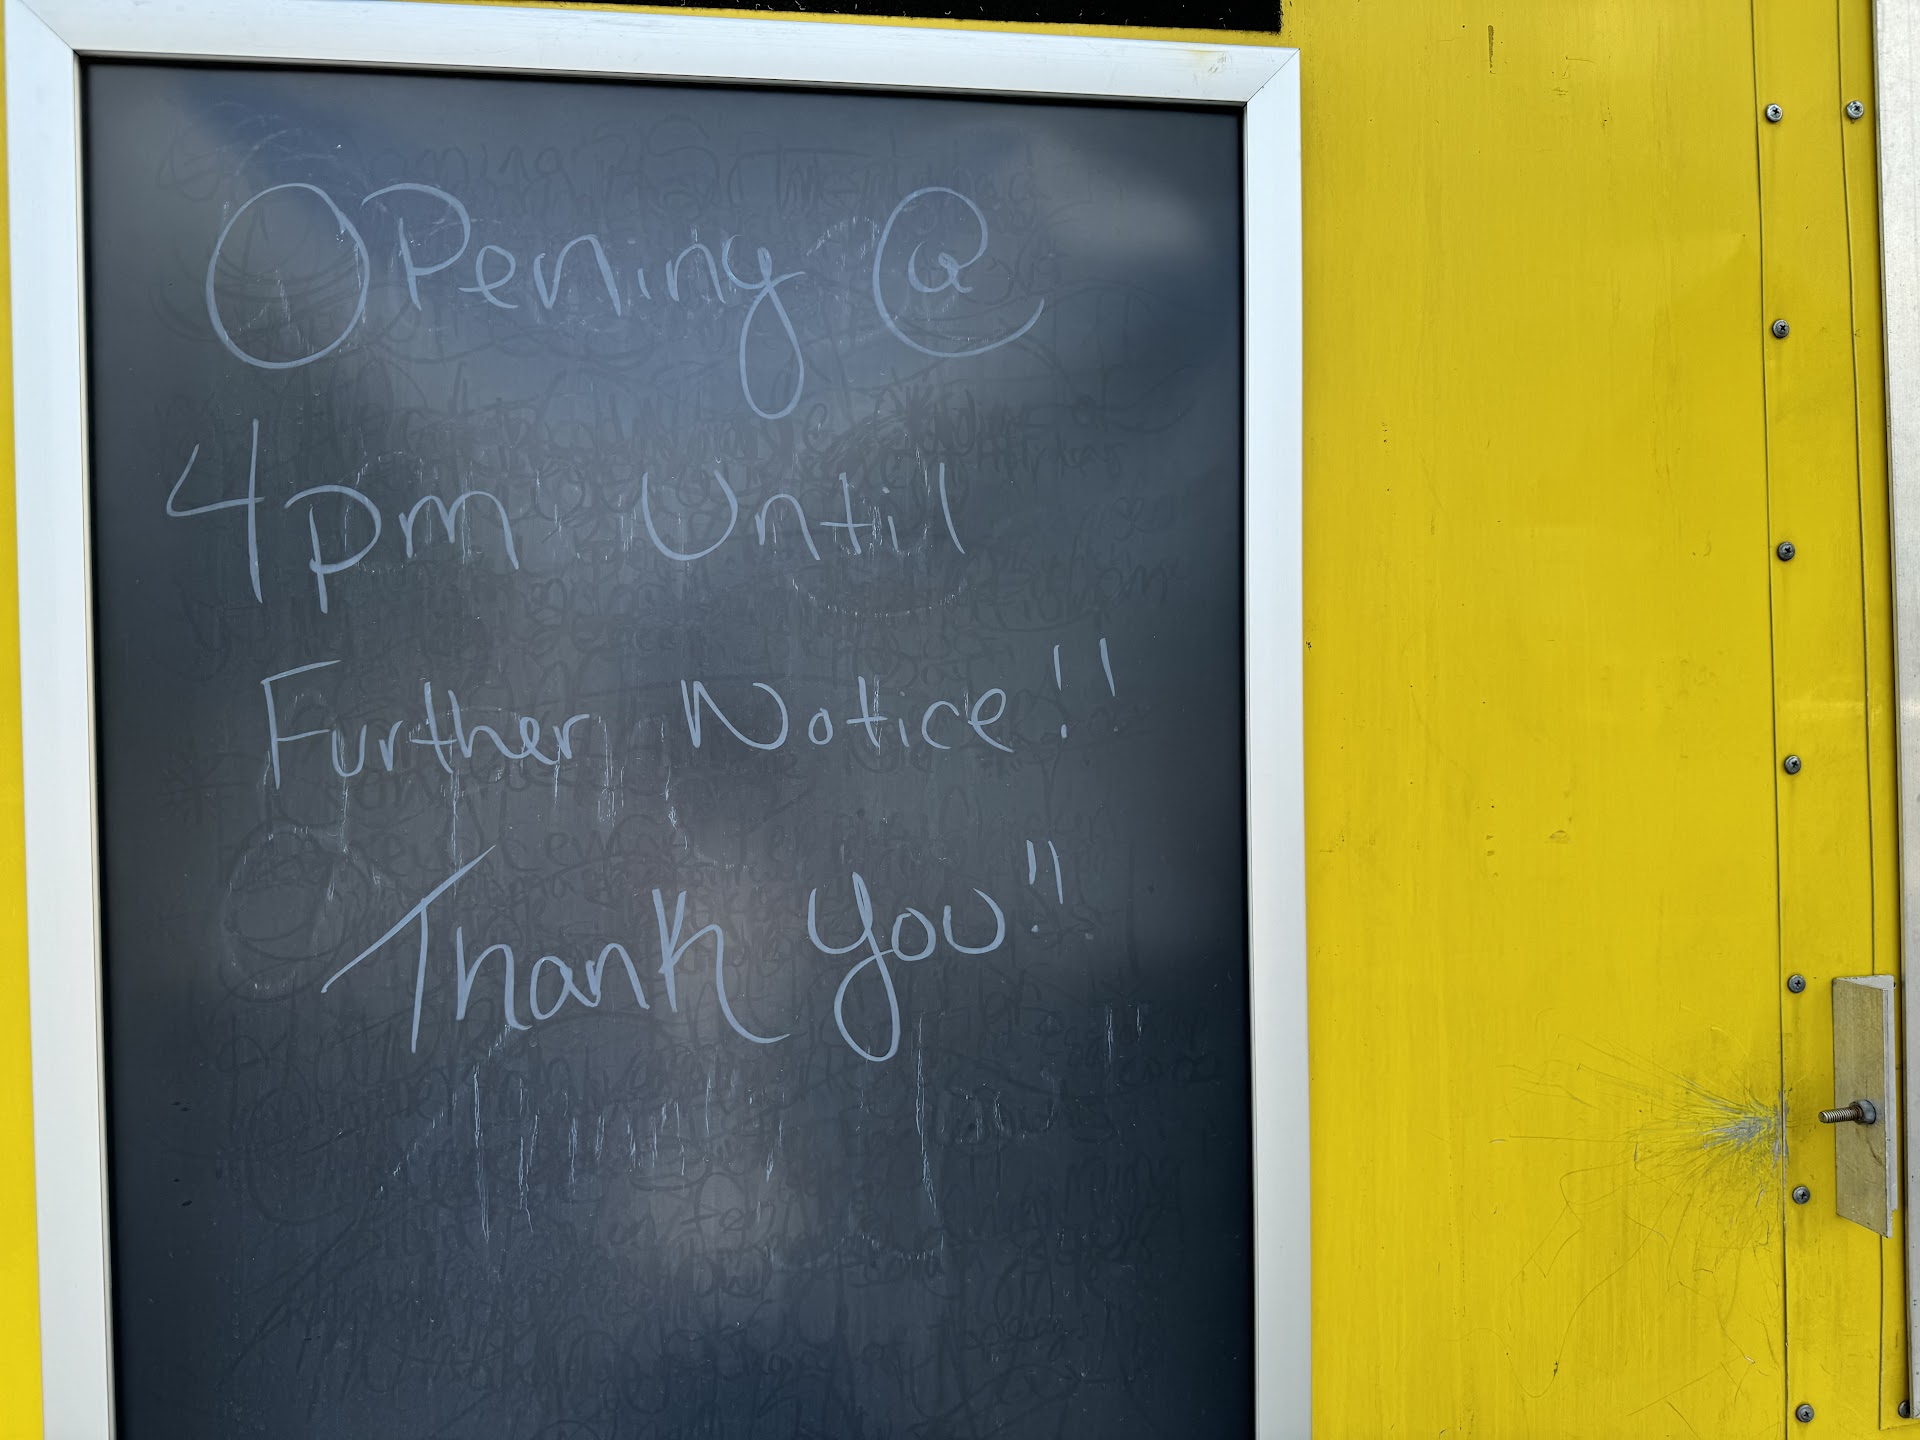 Opening @
4pm Until
Further Notice!!
Thank you!!